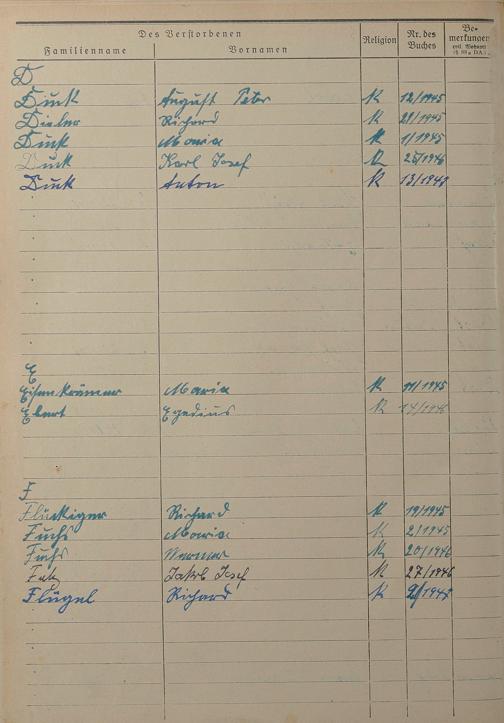 Des Verstorbenen
Familienname Vornamen Religion Nr. des Buches Be-merkungen
D
Dink August Peter K 12/1945
Dieler Richard K 21/1945
Dink Maria K 1/1945
Dink Karl Josef K 25/1946
Dink Anton K 13/1948
E
Eisenkrämer Maria K 11/1945
Ebert Egidius K 14/1946
F
Flückiger Richard K 19/1945
Fuchs Maria K 2/1945
Fuhs Werner K 20/1946
Jakob Josef K 27/1946
Flügel Richard K